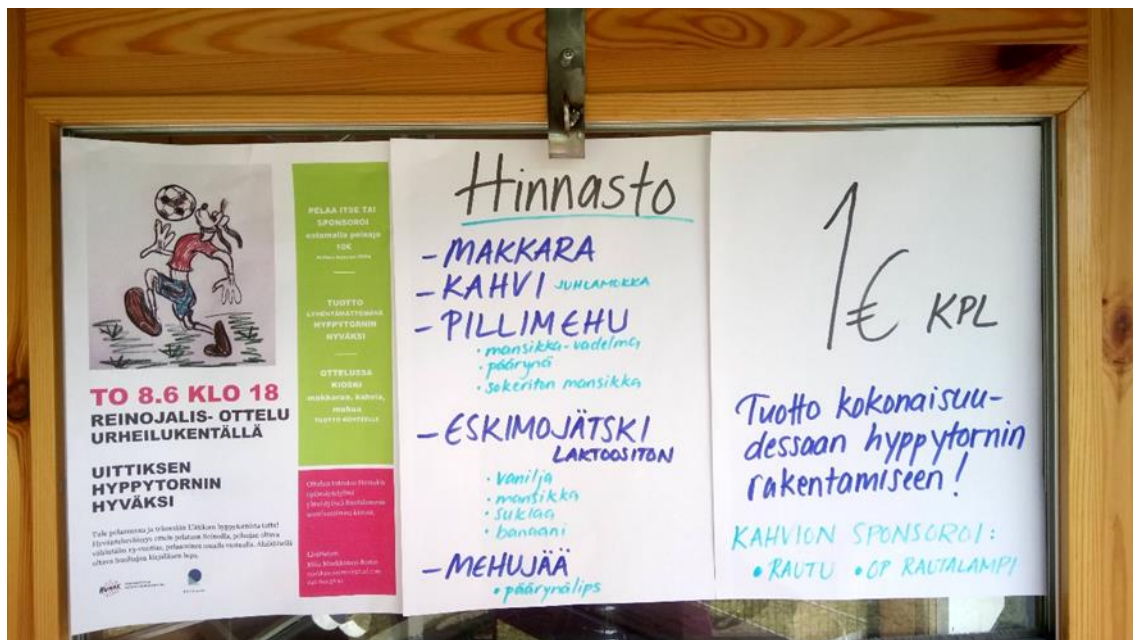 TO 8.6 KLO 18
REINOJALIS- OTTELU
URHEILUKENTÄLLÄ
UITTIKSEN
HYPPYTORNIN
HYVÄKSI
PELAA ITSE TAI
SPONSOROI
ostamalla pelaaja
10€
TUOTTO
HYPPYTORNIN
HYVÄKSI
OTTELUSSA
KIOSKI
makkaraa, kahvia,
mehua
Hinnasto
- MAKKARA
- KAHVI JUHLAMOKKA
- PILLIMEHU
• mansikka-vadelma
• päärynä
• sokeriton mansikka
- ESKIMOJÄTSKI
LAKTOOSITON
• vanilja
• mansikka
• suklaa
• banaani
- MEHUJÄÄ
• päärynälips
1€ KPL
Tuotto kokonaisuu-
dessaan hyppytornin
rakentamiseen!
KAHVION SPONSOROI:
• RAUTU • OP RAUTALAMPI